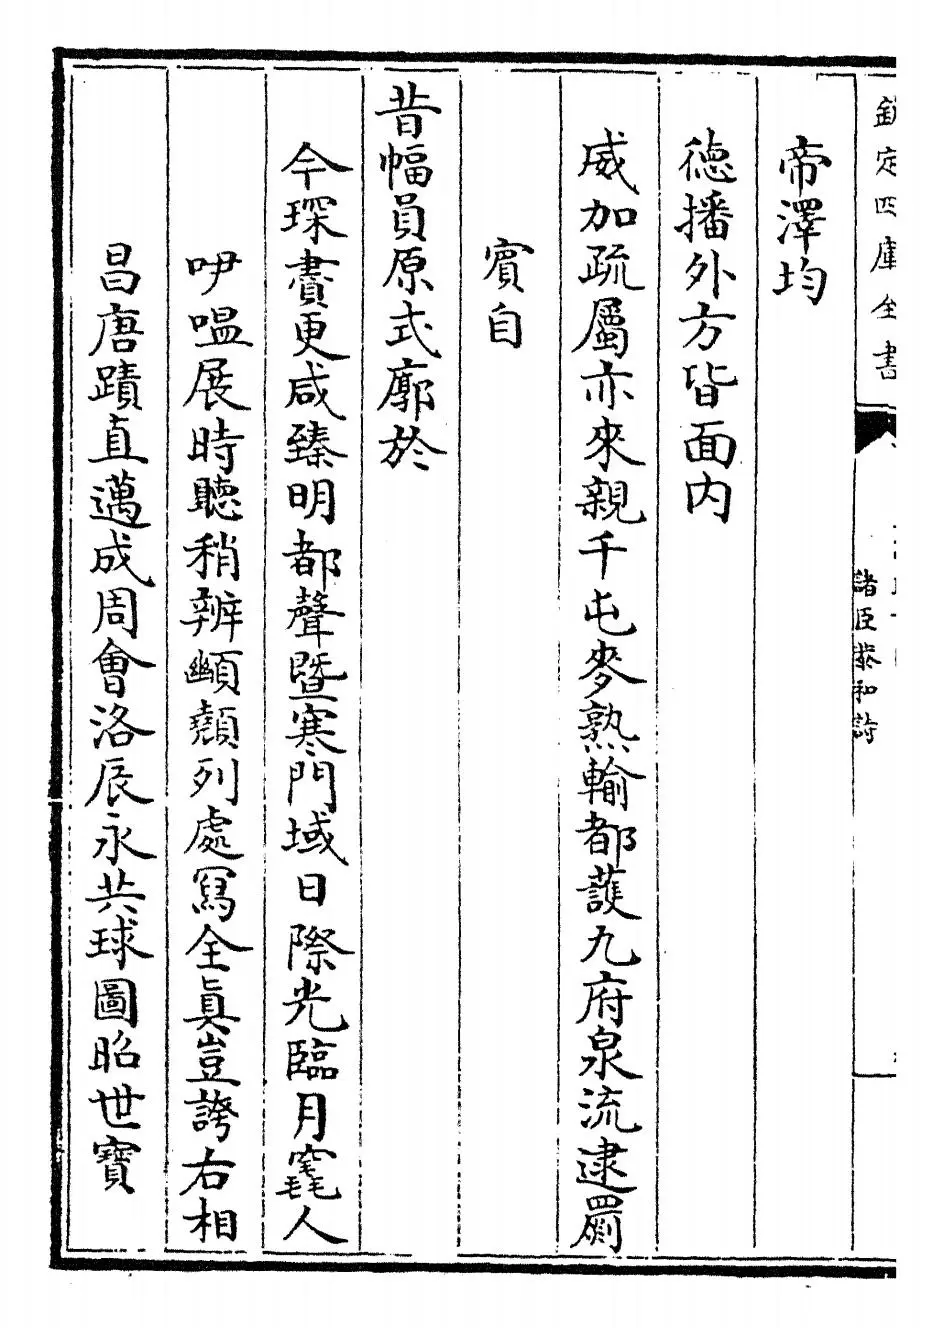 欽定四庫全書
諸臣恭和詩
帝澤均
徳播外方皆面内
威加疏屬亦來親千屯麥熟輸都䕶九府泉流逮罽
賔自
昔幅員原式廓於
今琛賮更咸臻明都聲暨寒門域日際光臨月竁人
吚嗢展時聽稍辨𩔁顏列處冩全真豈誇右相
昌唐蹟直邁成周會洛辰永共球圖昭世寶